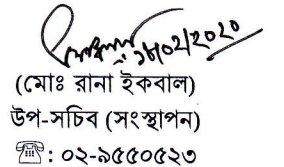 ১৮/০২/২০২০
(মোঃ রানা ইকবাল)
উপ-সচিব (সংস্থাপন)
☎: ০২-৯৫৫০৫২৩